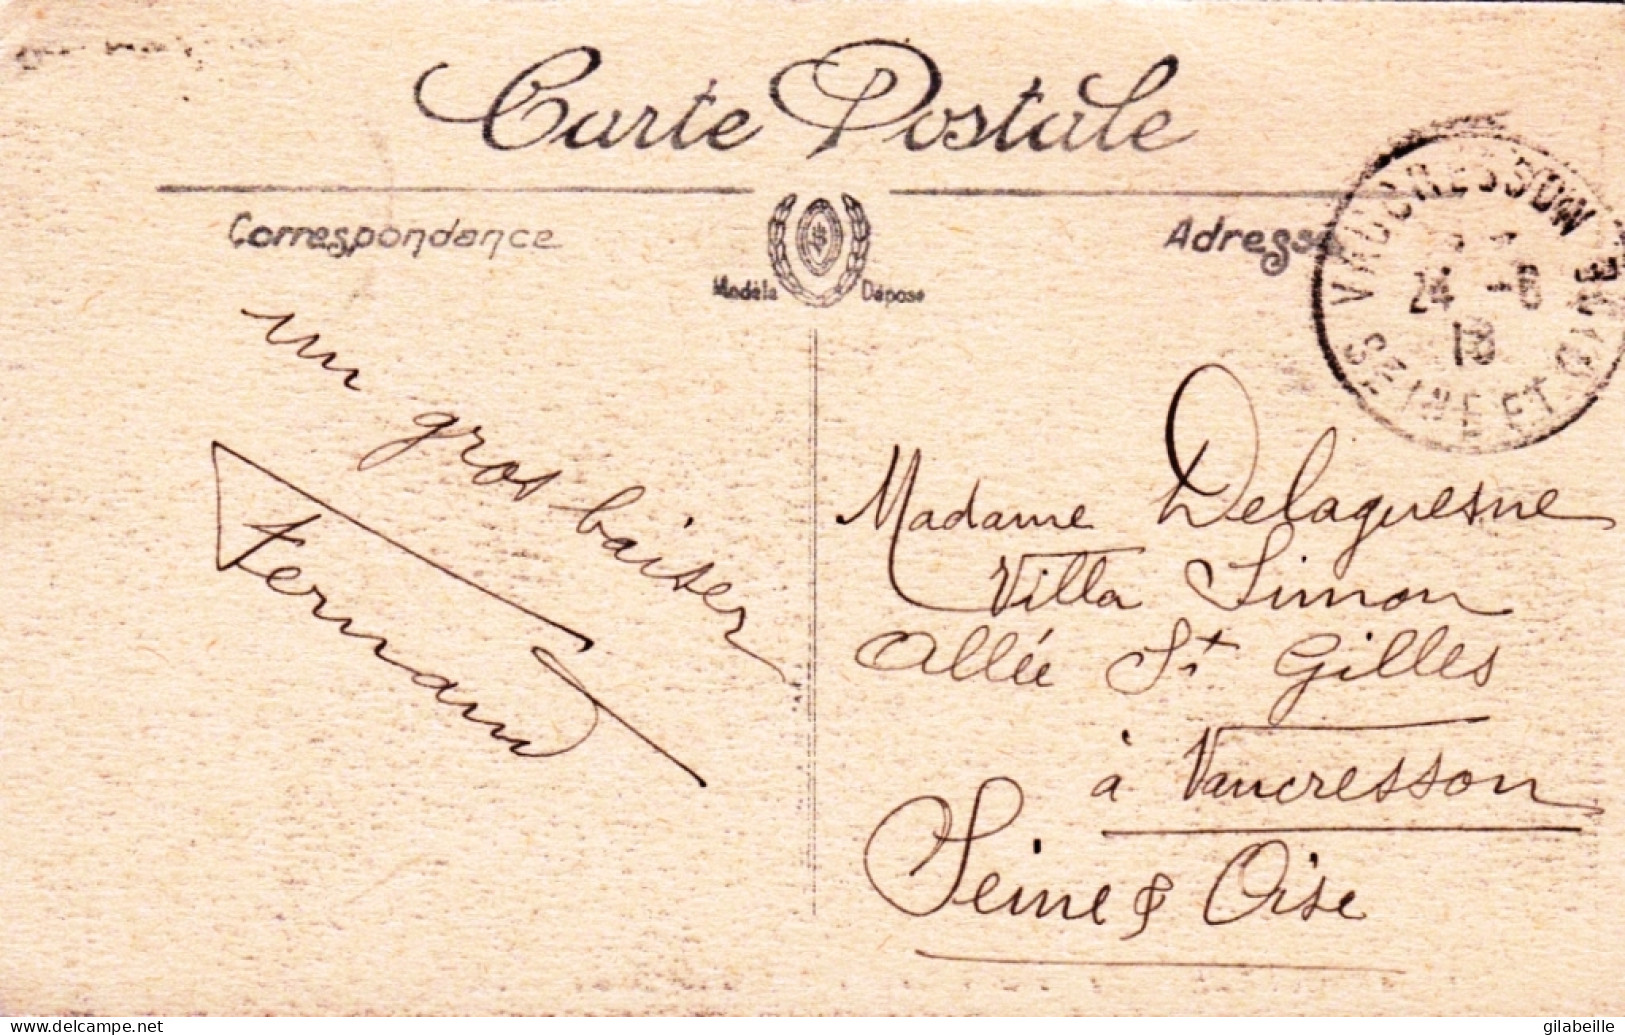 Carte Postale
Correspondance
Modèle Déposé
Adresse
VAUCRESSON
24 -6
18
SEINE ET OISE
un gros baiser
Fernand
Madame Delaquesne
Villa Simon
Allée St Gilles
à Vaucresson
Seine & Oise
www.delcampe.net
gilabeille